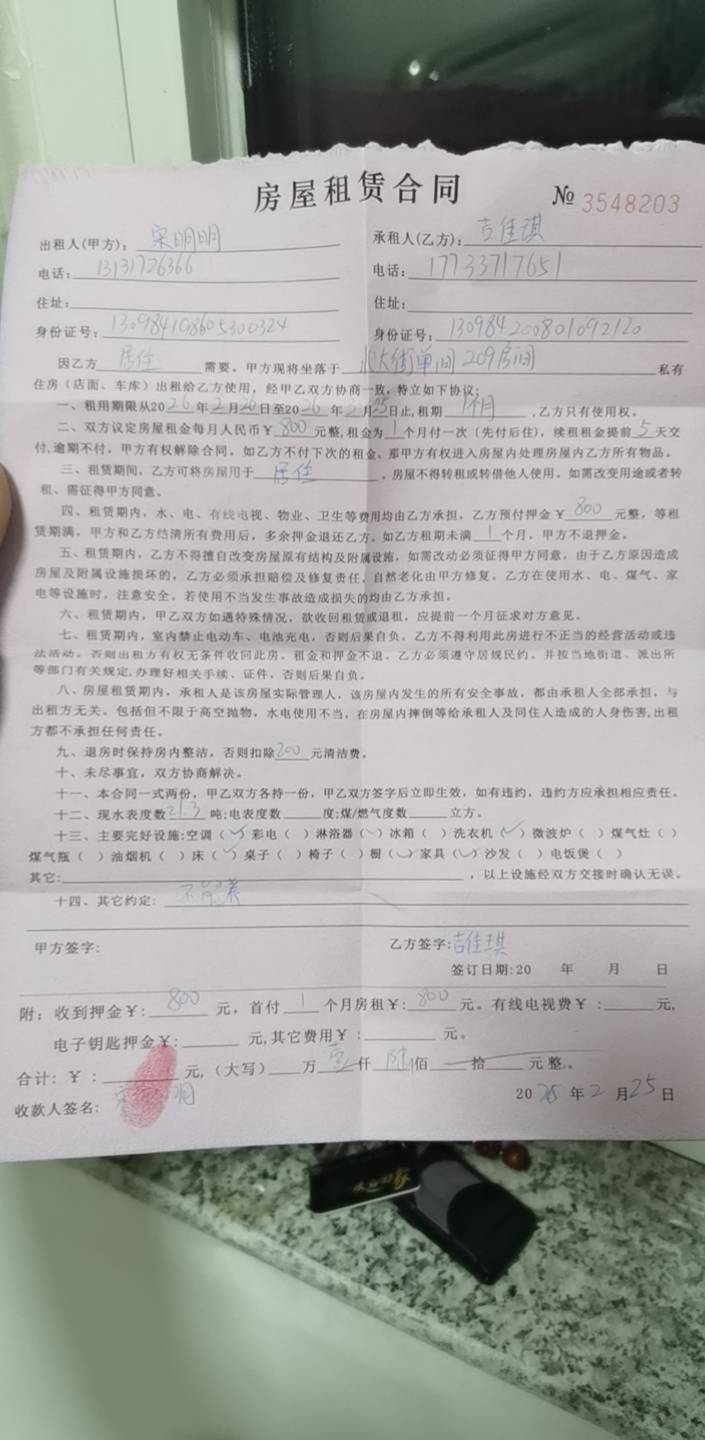 房屋租赁合同 № 3548203
出租人(甲方): 宋明明 承租人(乙方): 吉佳琪
电话: 13131726366 电话: 17733717651
住址: 住址:
身份证号: 130984198605300324 身份证号: 130984200801092120
因乙方 居住 需要。甲方现将坐落于 大街单间209房间 私有
住房（店面、车库）出租给乙方使用，经甲乙双方协商一致，特立如下协议：
一、租用期限从2026年2月26日至2026年 月25日止,租期 1个月 ,乙方只有使用权。
二、双方议定房屋租金每月人民币￥800元整,租金为1个月付一次（先付后住），续租租金提前5天交
付,逾期不付，甲方有权解除合同。如乙方不付下次的租金、那甲方有权进入房屋内处理房屋内乙方所有物品。
三、租赁期间，乙方可将房屋用于 居住 ，房屋不得转租或转借他人使用。如需改变用途或者转
租、需征得甲方同意。
四、租赁期内，水、电、有线电视、物业、卫生等费用均由乙方承担，乙方预付押金￥800元整，等租
赁期满，甲方和乙方结清所有费用后，多余押金退还乙方。如乙方租期未满1个月，甲方不退押金。
五、租赁期内，乙方不得擅自改变房屋原有结构及附属设施，如需改动必须征得甲方同意，由于乙方原因造成
房屋及附属设施损坏的，乙方必须承担赔偿及修复责任，自然老化由甲方修复。乙方在使用水、电、煤气、家
电等设施时，注意安全。若使用不当发生事故造成损失的均由乙方承担。
六、租赁期内，甲乙双方如遇特殊情况，欲收回租赁或退租，应提前一个月征求对方意见。
七、租赁期内，室内禁止电动车、电池充电，否则后果自负。乙方不得利用此房进行不正当的经营活动或违
法活动。否则出租方有权无条件收回此房。租金和押金不退。乙方必须遵守居规民约。并按当地街道、派出所
等部门有关规定,办理好相关手续、证件，否则后果自负。
八、房屋租赁期内，承租人是该房屋实际管理人，该房屋内发生的所有安全事故，都由承租人全部承担，与
出租方无关。包括但不限于高空抛物，水电使用不当，在房屋内摔倒等给承租人及同住人造成的人身伤害,出租
方都不承担任何责任。
九、退房时保持房内整洁，否则扣除200元清洁费。
十、未尽事宜，双方协商解决。
十一、本合同一式两份，甲乙双方各持一份，甲乙双方签字后立即生效，如有违约，违约方应承担相应责任。
十二、现水表度数21.3吨;电表度数 度;煤/燃气度数 立方。
十三、主要完好设施:空调（✓）彩电（ ）淋浴器（✓）冰箱（ ）洗衣机（✓）微波炉（ ）煤气灶（ ）
煤气瓶（ ）油烟机（ ）床（✓）桌子（ ）椅子（ ）橱（✓）家具（✓）沙发（ ）电饭煲（ ）
其它: ，以上设施经双方交接时确认无误。
十四、其它约定:
甲方签字: 乙方签字: 吉佳琪
签订日期:20 年 月 日
附：收到押金￥: 800 元，首付 1 个月房租￥: 800 元。有线电视费￥： 元,
电子钥匙押金￥: 元,其它费用￥： 元。
合计：￥： 元,（大写） 万 壹 仟 陆 佰 拾 元整。
收款人签名: 宋 明 20 年2月25日